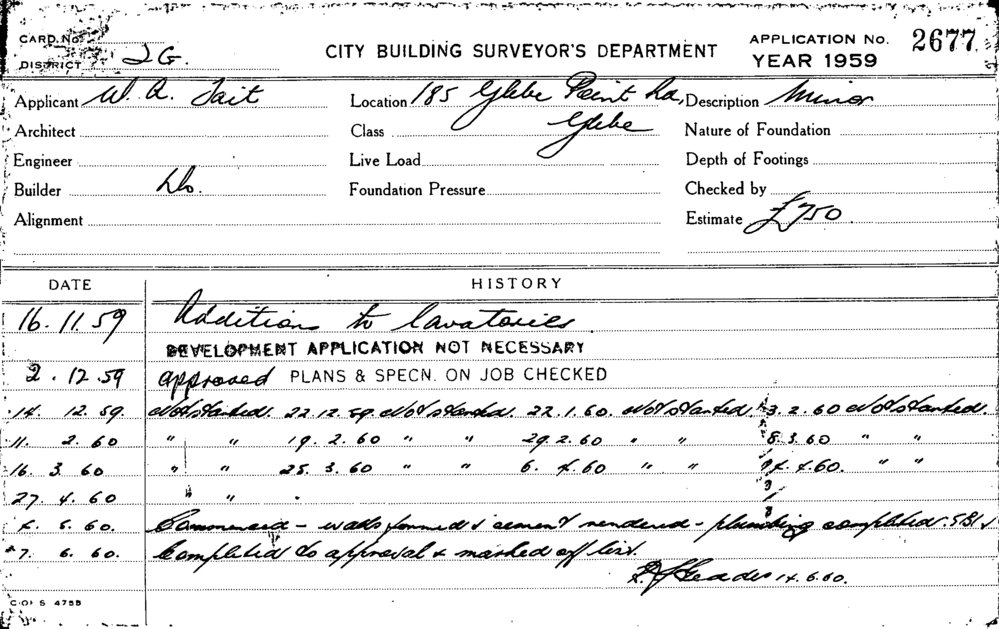 CARD. No.
DISTRICT 2G.
CITY BUILDING SURVEYOR'S DEPARTMENT
APPLICATION No. 2677
YEAR 1959
Applicant W. A. Tait Location 185 Glebe Point Rd, Description Minor
Architect Class Glebe Nature of Foundation
Engineer Live Load Depth of Footings
Builder Do. Foundation Pressure Checked by
Alignment Estimate £750
DATE HISTORY
16. 11. 59 Additions to lavatories
DEVELOPMENT APPLICATION NOT NECESSARY
2. 12. 59 approved PLANS & SPECN. ON JOB CHECKED
14. 12. 59. Not started. 22. 12. 59 Not started. 22. 1. 60. Not started. 3. 2. 60 Not started.
11. 2. 60 " " 19. 2. 60 " " 29. 2. 60 " " 8. 3. 60 " "
16. 3. 60 " " 25. 3. 60 " " 6. 4. 60 " " 14. 4. 60. " "
27. 4. 60 " " .
5. 60. Commenced - walls formed & cement rendered - plumbing completed.
7. 6. 60. Completed to approval & marked off list.
14. 6. 60.
C. OF S 4755